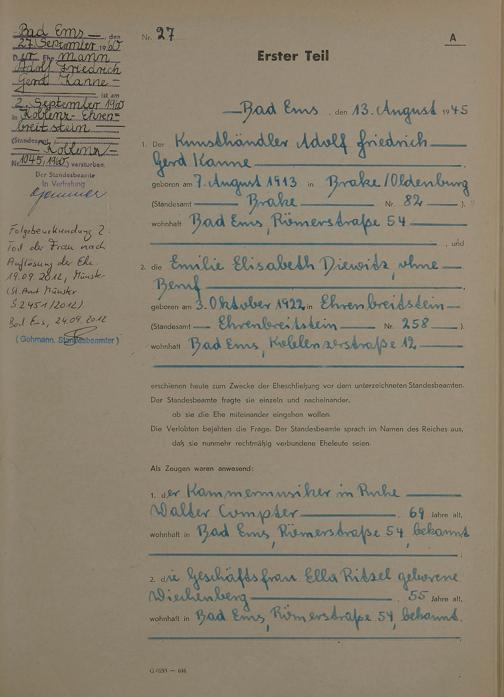 Bad Ems —, den
27. September 1960
Der Ehemann
Adolf Friedrich
Gerd Kanne —
ist am
2. September 1960
in Koblenz-Ehren-
breitstein —
(Standesamt
Koblenz —
Nr. 1045/1960) verstorben.
Der Standesbeamte
In Vertretung
Folgebeurkundung 2.
Tod der Frau nach
Auflösung der Ehe
19.09.2012, Münster
(St.Amt Münster
S 2451/2012)
Bad Ems, 24.09.2012
(Gohmann, Standesbeamter)
Nr. 27
A
Erster Teil
— Bad Ems, den 13. August 1945
1. Der Kunsthändler Adolf Friedrich —
Gerd Kanne —
geboren am 7. August 1913 in Brake/Oldenburg
(Standesamt — Brake — Nr. 82 —).
wohnhaft Bad Ems, Römerstraße 54 —
, und
2. die Emilie Elisabeth Diewitz, ohne
Beruf —
geboren am 3. Oktober 1922 in Ehrenbreitstein —
(Standesamt — Ehrenbreitstein — Nr. 258 —)
wohnhaft Bad Ems, Koblenzerstraße 12 —
erschienen heute zum Zwecke der Eheschließung vor dem unterzeichneten Standesbeamten.
Der Standesbeamte fragte sie einzeln und nacheinander,
ob sie die Ehe miteinander eingehen wollen.
Die Verlobten bejahten die Frage. Der Standesbeamte sprach im Namen des Reiches aus,
daß sie nunmehr rechtmäßig verbundene Eheleute seien.
Als Zeugen waren anwesend:
1. der Kammermusiker in Ruhe —
Walter Compter — 69 Jahre alt,
wohnhaft in Bad Ems, Römerstraße 54, bekannt
2. die Geschäftsfrau Ella Ritzel geborene
Wiechenberg — 55 Jahre alt,
wohnhaft in Bad Ems, Römerstraße 54, bekannt.